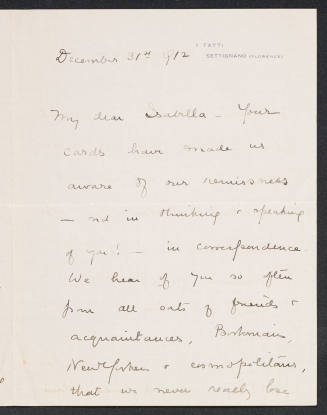 I TATTI
SETTIGNANO (FLORENCE)
December 31st 1912
My dear Isabella - Your
cards have made us
aware of our remissness
- not in thinking & speaking
of you! - in correspondence.
We hear of you so often
from all sorts of friends &
acquaintances, Bostonian,
New Yorker & cosmopolitans,
that we never really lose